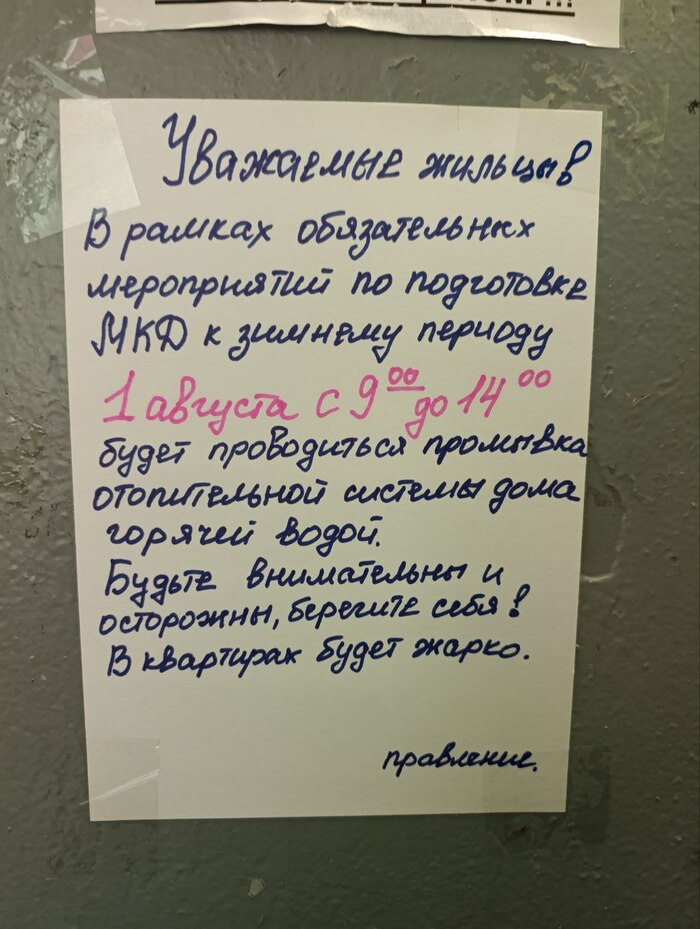 Уважаемые жильцы!
В рамках обязательных
мероприятий по подготовке
МКД к зимнему периоду
1 августа с 9 00 до 14 00
будет проводиться промывка
отопительной системы дома
горячей водой.
Будьте внимательны и
осторожны, берегите себя!
В квартирах будет жарко.
правление.